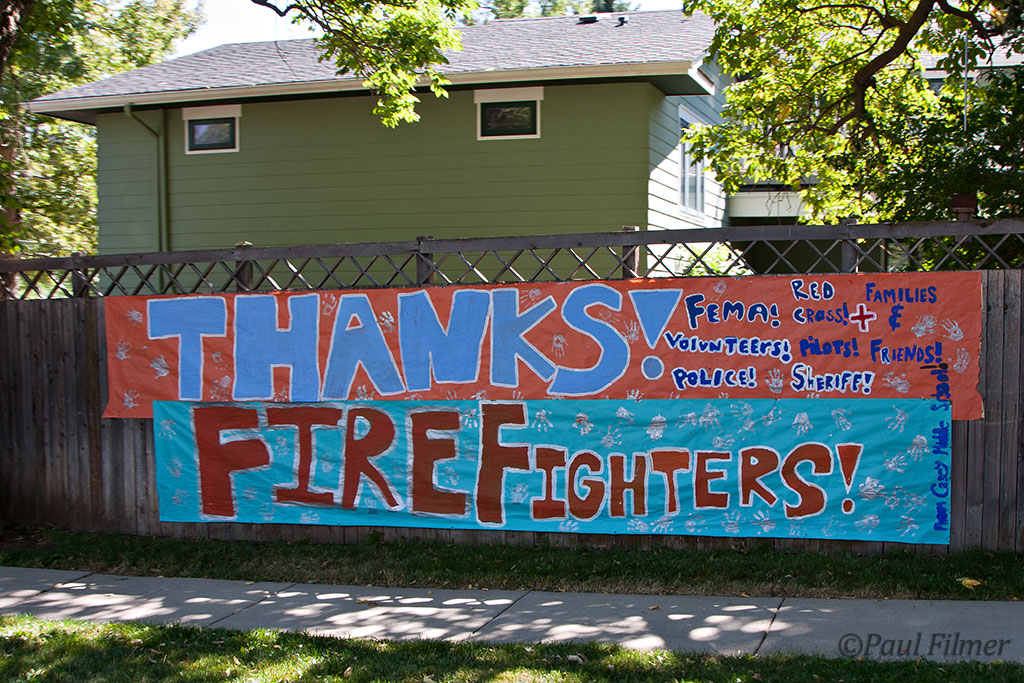 THANKS!
FEMA! RED CROSS!+ FAMILIES & FRIENDS!
VOLUNTEERS! PILOTS!
POLICE! SHERIFF!
FIREFIGHTERS!
From Casey Middle School!
©Paul Filmer